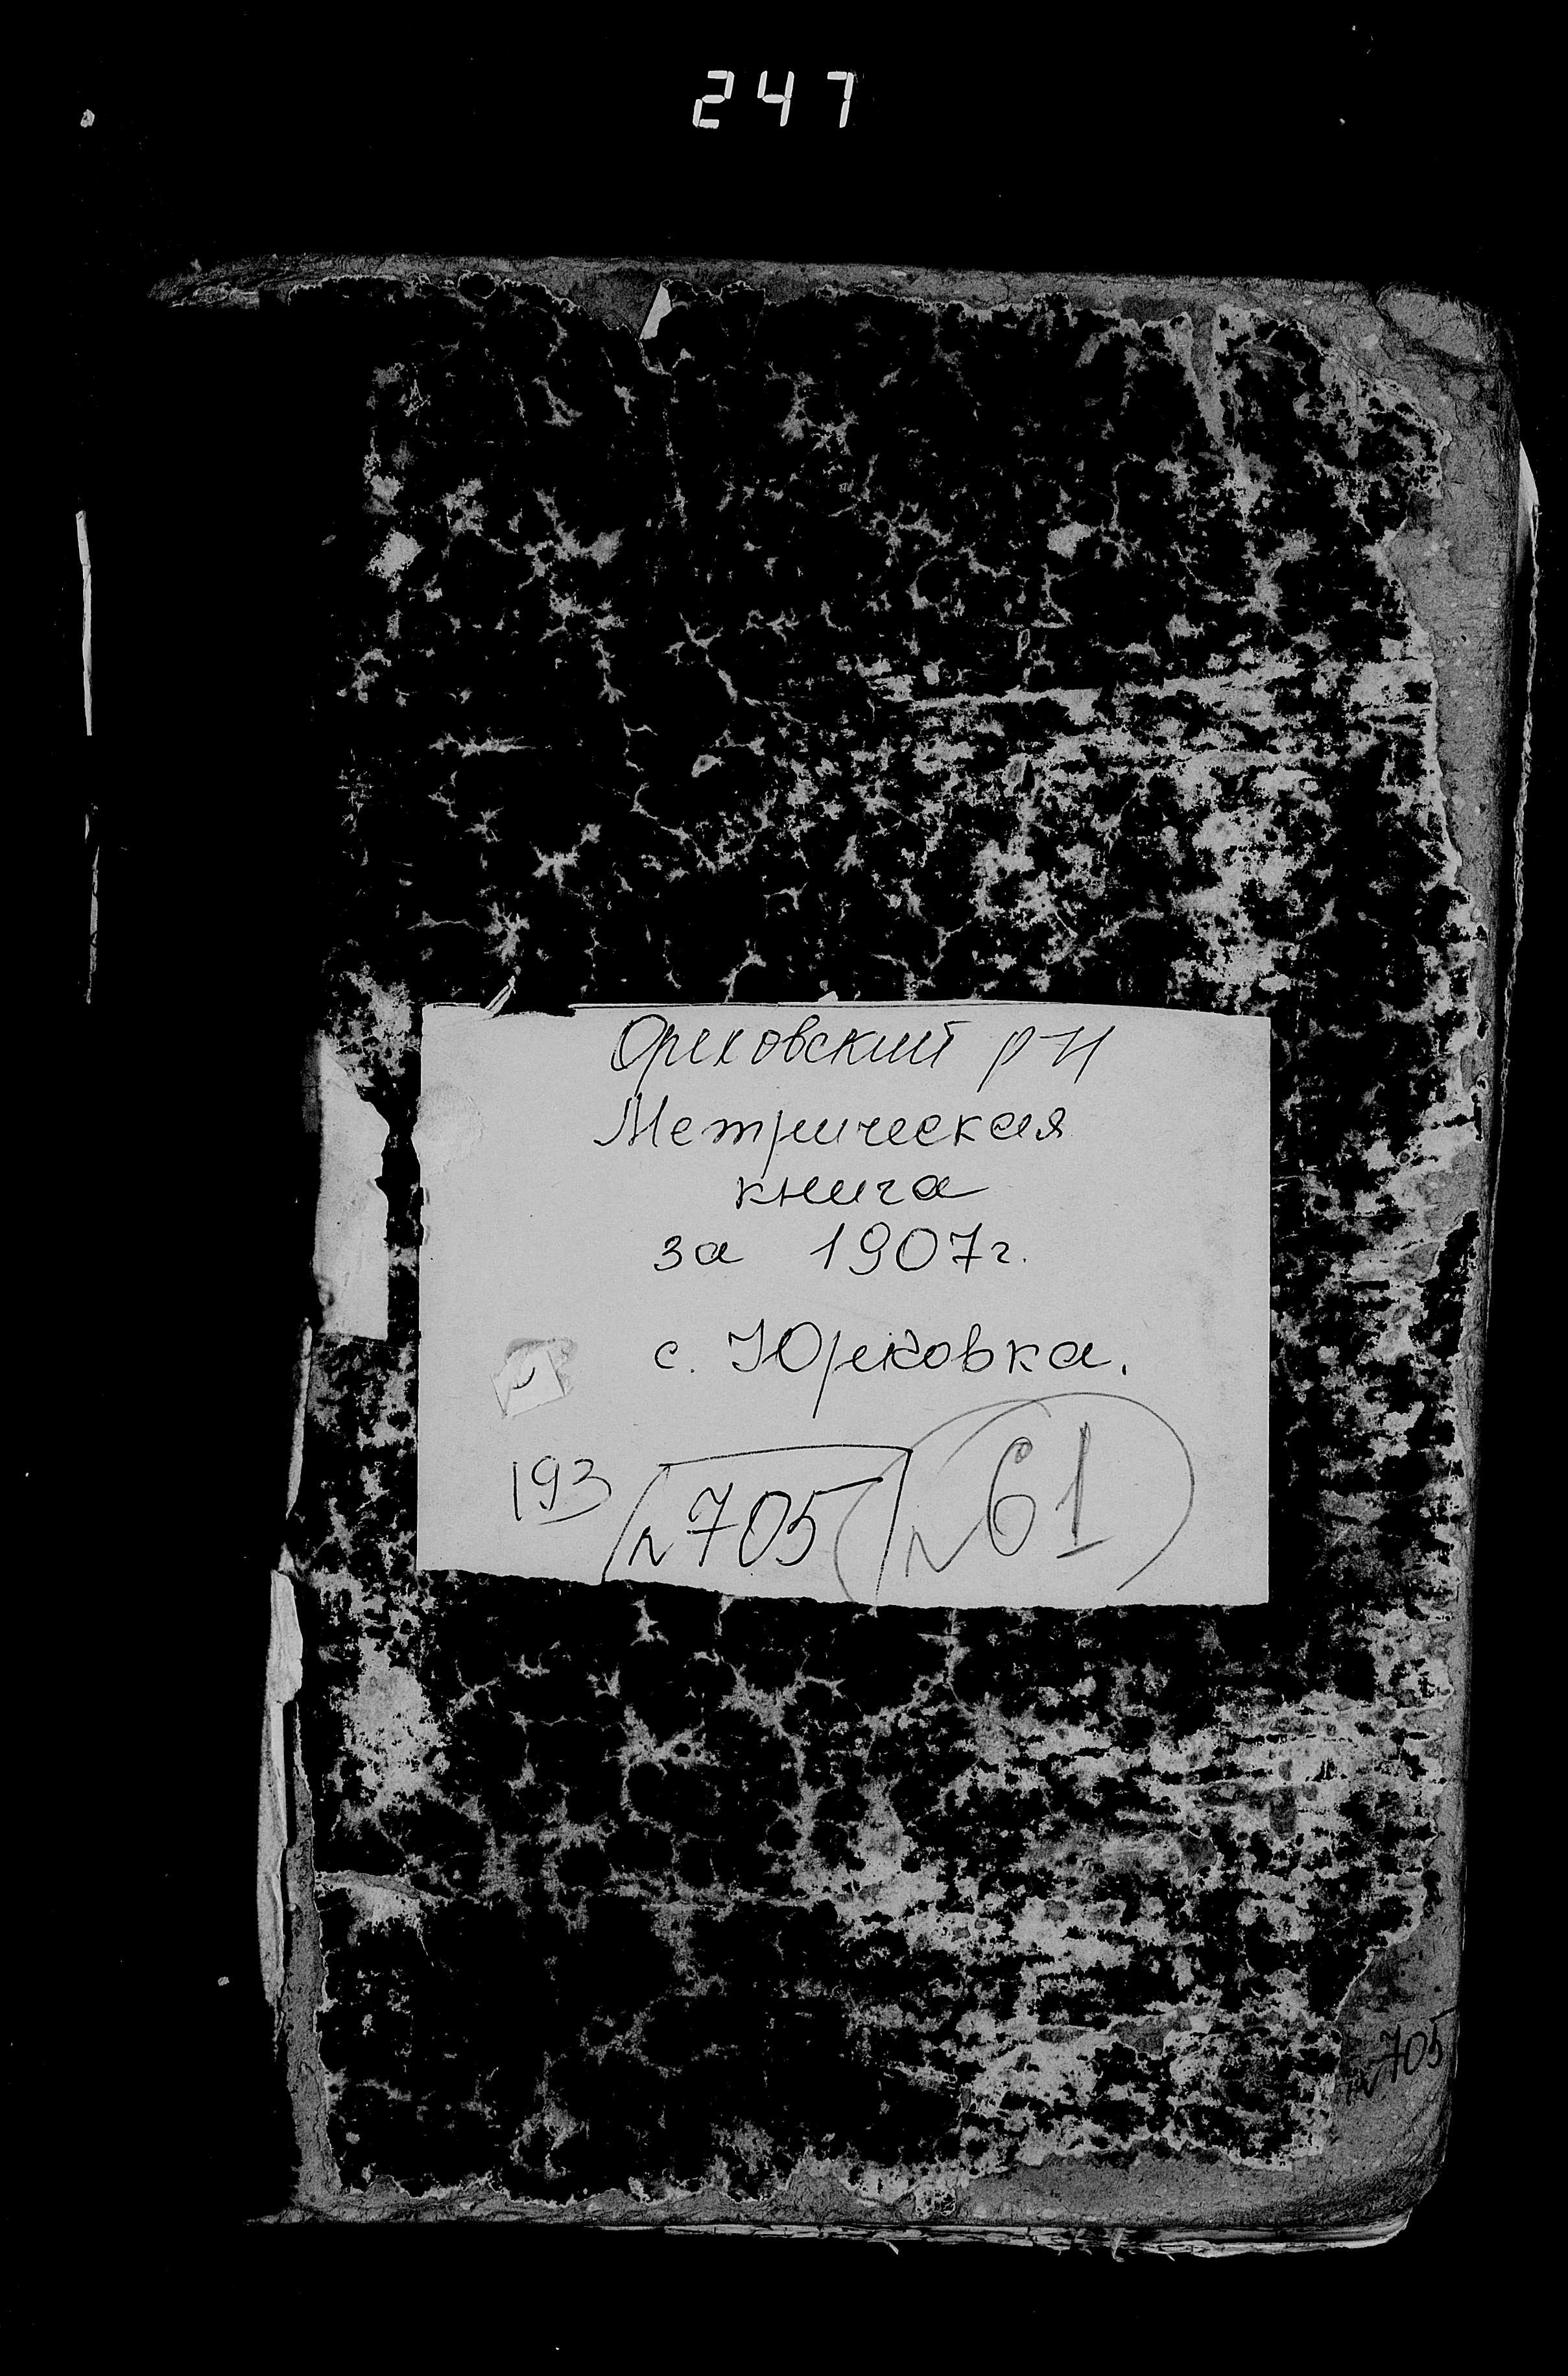 247
Ореховский р-н
Метрическая
книга
за 1907г.
с. Юрковка.
193 №705 №61
№705